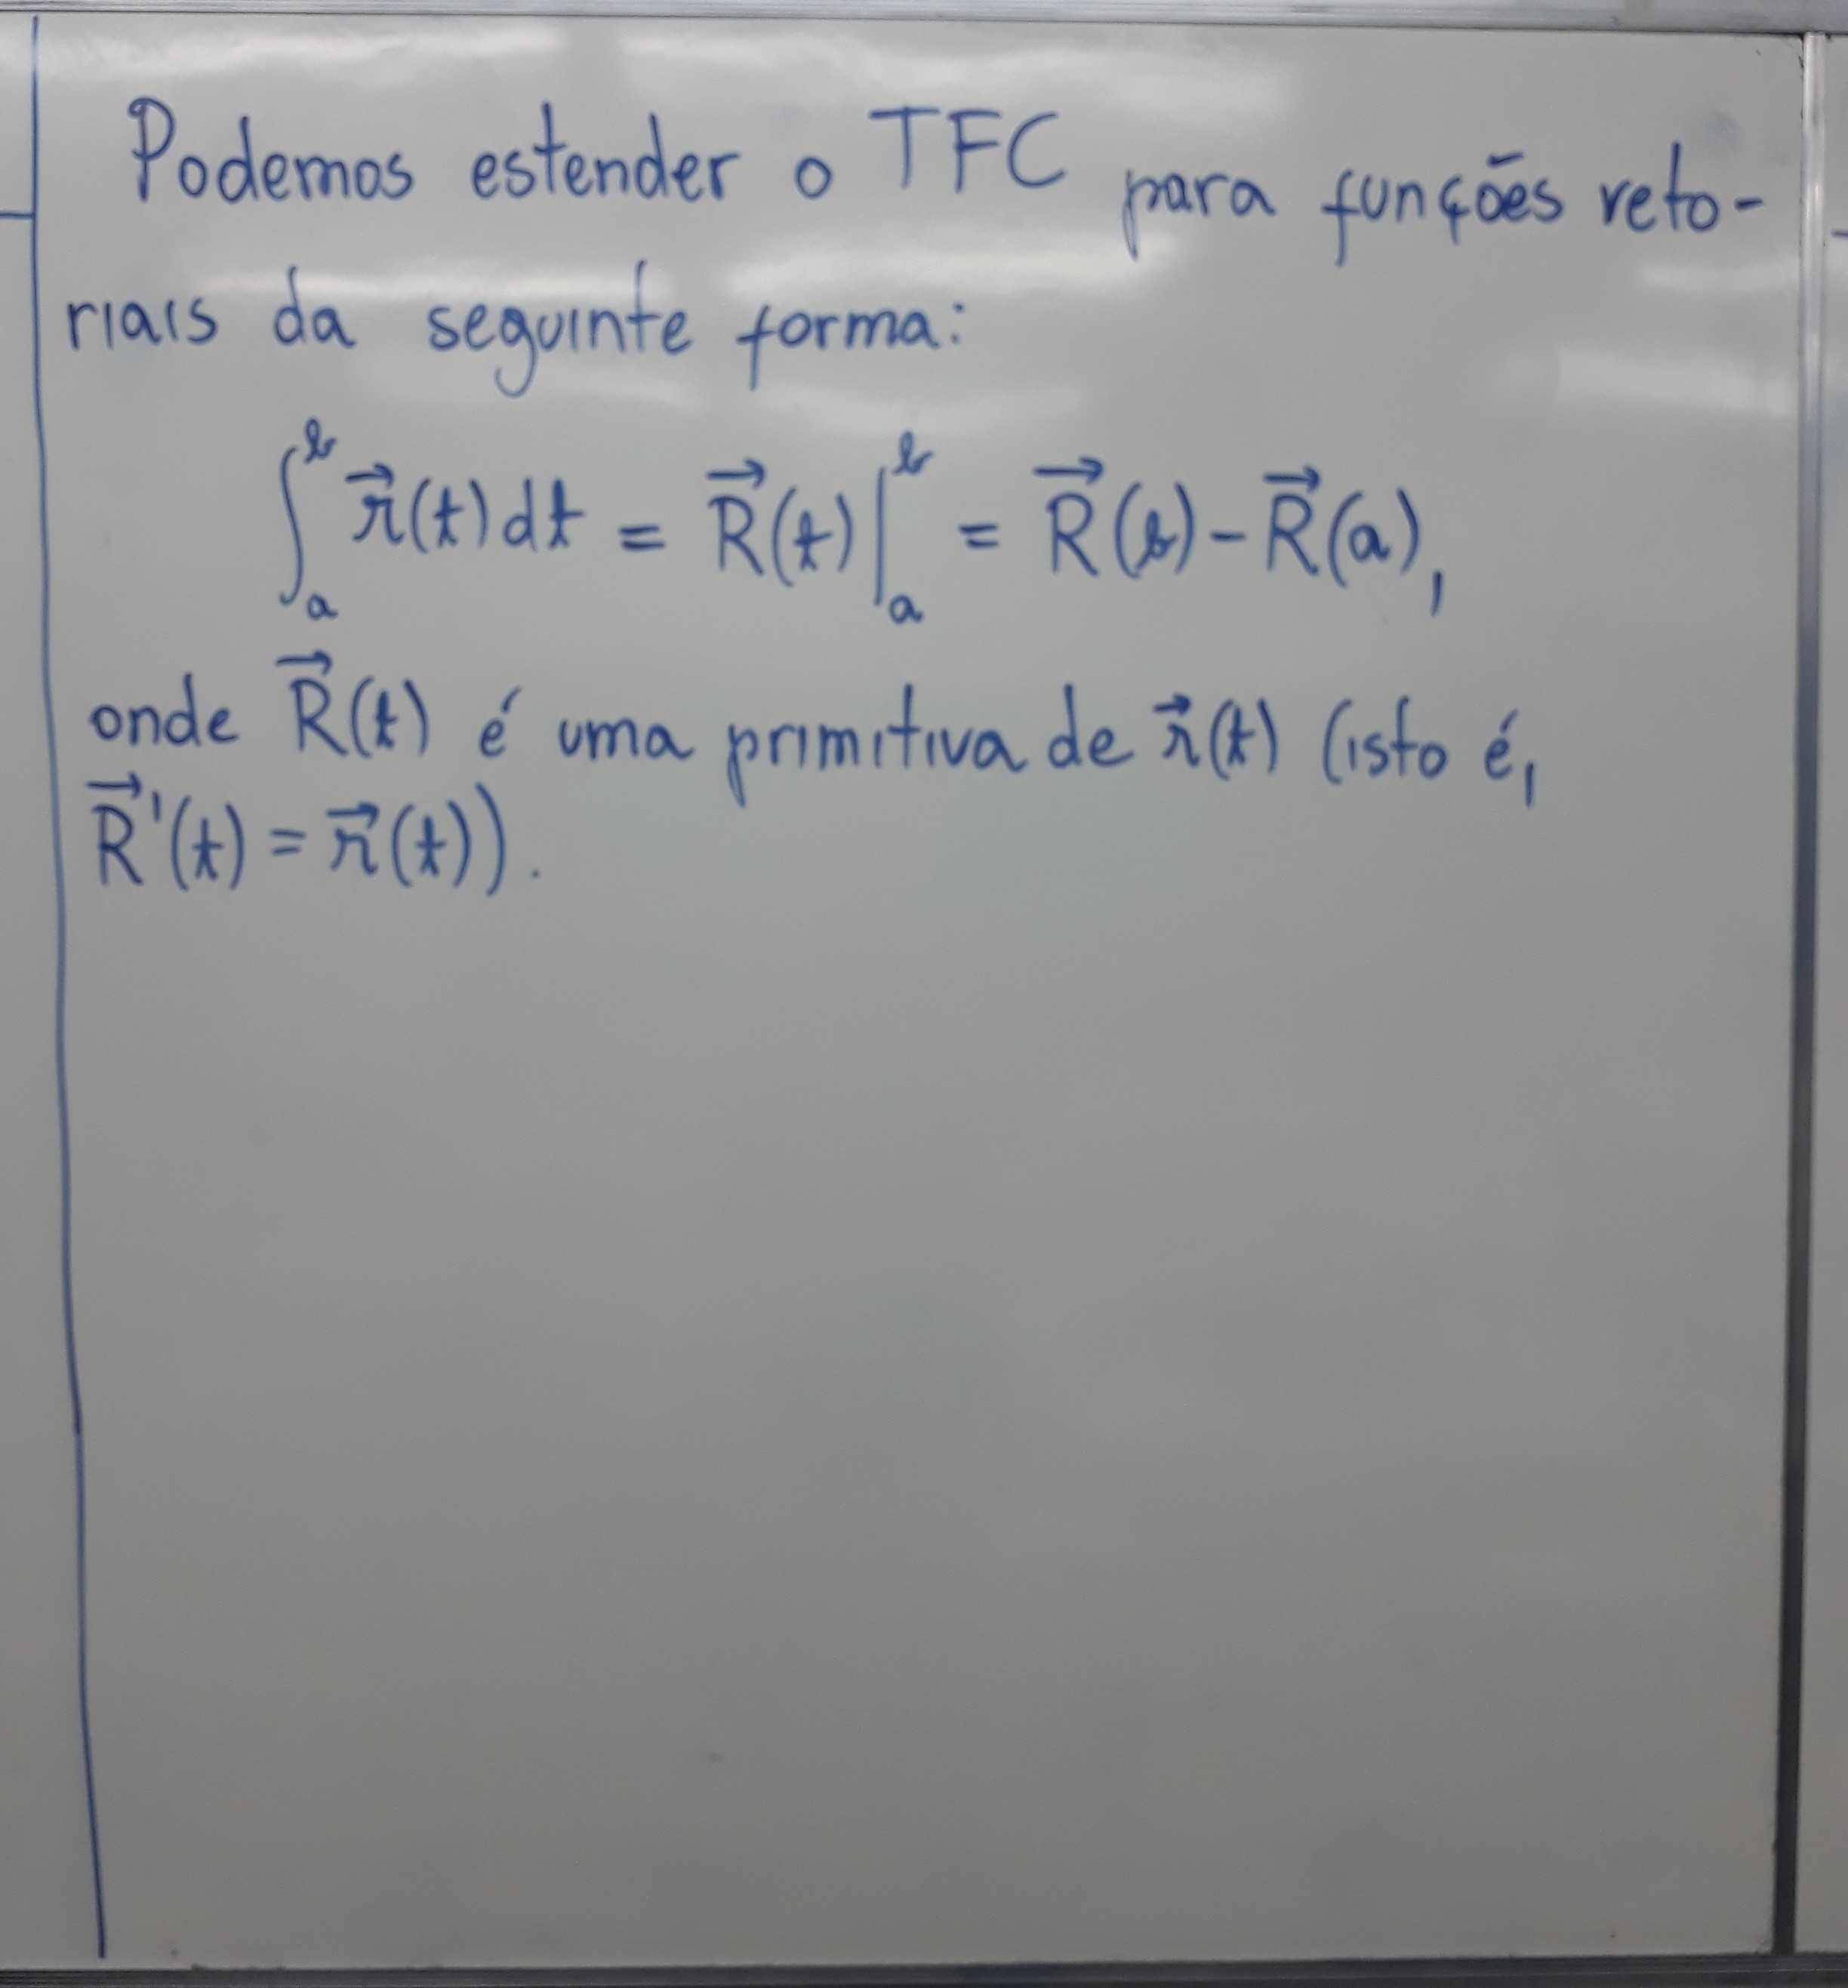 Podemos estender o TFC para funções veto-
riais da seguinte forma:
∫_a^b r⃗(t)dt = R⃗(t)|_a^b = R⃗(b) - R⃗(a),
onde R⃗(t) é uma primitiva de r⃗(t) (isto é,
R⃗'(t) = r⃗(t)).